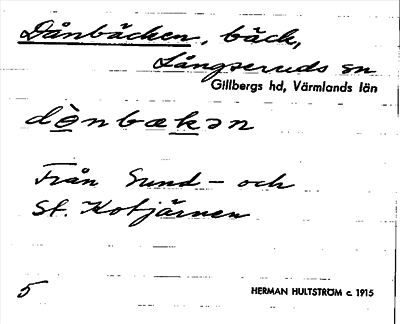 Dånbäcken, bäck,
Långseruds sn
Gillbergs hd, Värmlands län
dὲnbækən
Från Sund- och
St. Kotjärnen
5
HERMAN HULTSTRÖM c. 1915